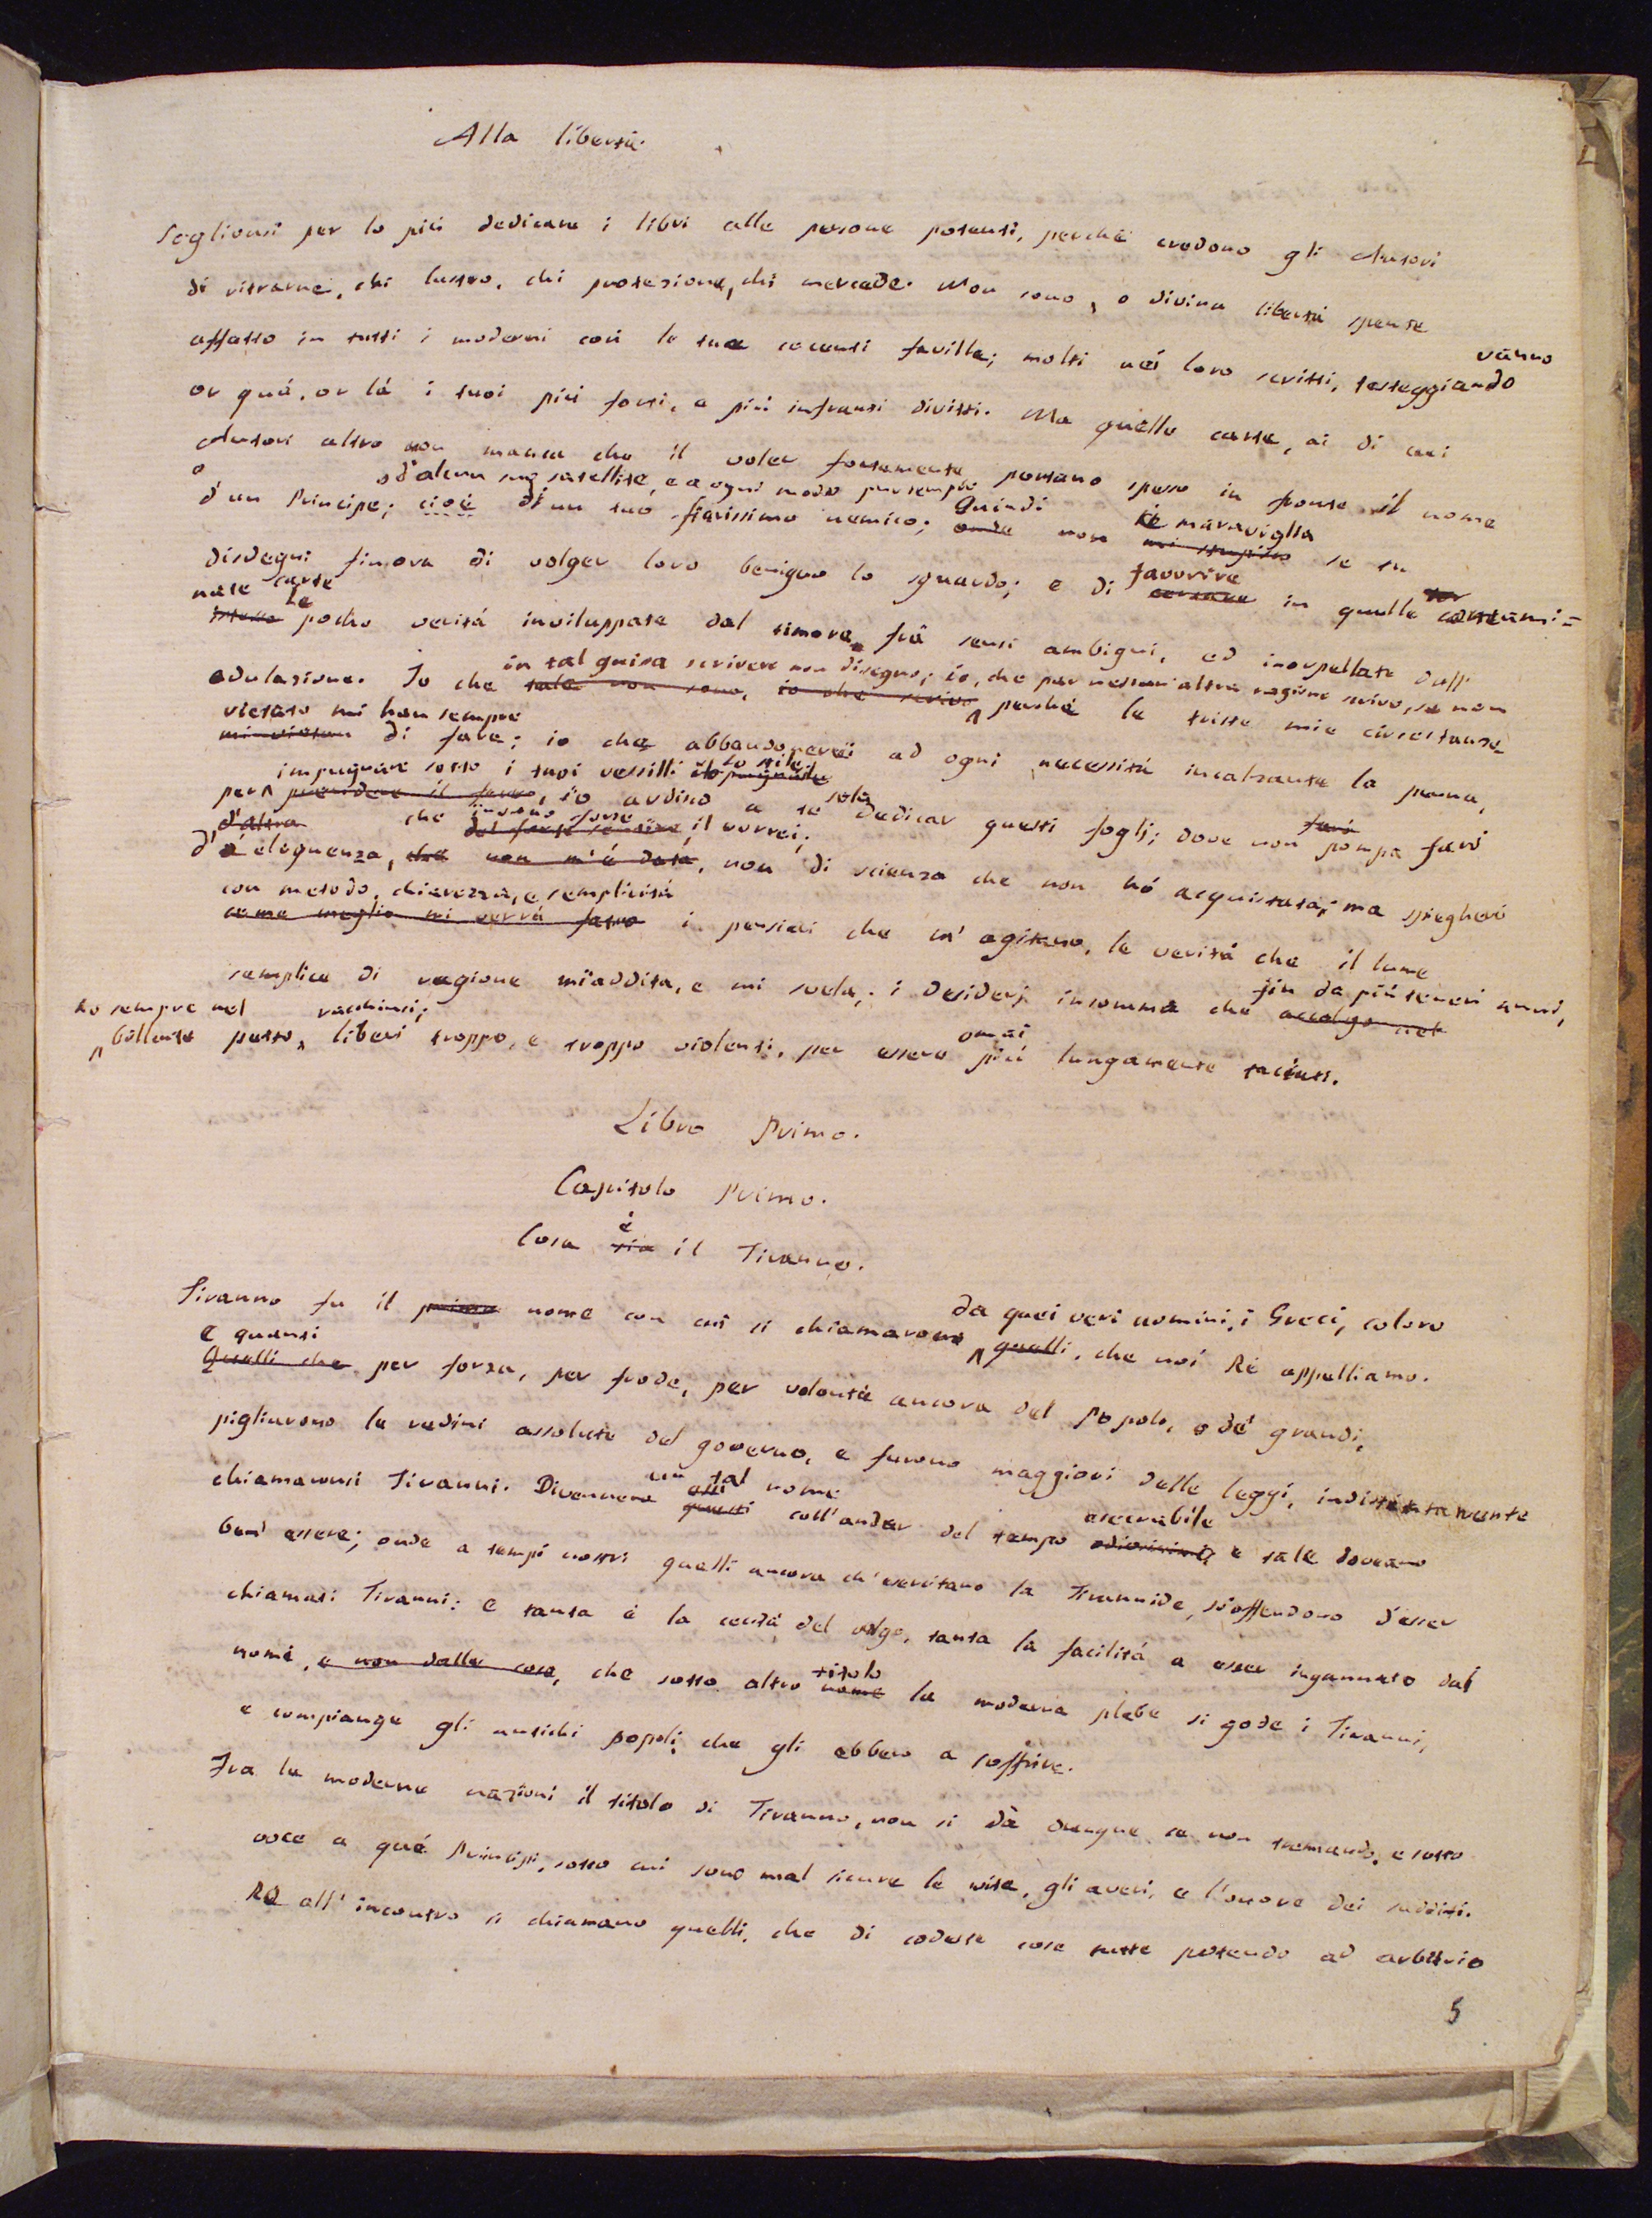 Alla libertà.
Sogliousi per lo più dedicare i libri alle persone potenti, perché credono gli Autori
di ritrarne, chi lustro, chi protezione, chi mercede. Non sono, o divina libertà spente
affatto in tutti i moderni così le tue cocenti faville; molti nei loro scritti, vanno testeggiando
or quà, or là i tuoi più forti, e più infranti diritti. Ma quelle carte, ai di cui
Autori altro non manca che il voler fortemente portano spesso in fronte il nome
od'alcun suo satellite, e a ogni modo pur sempre
d'un Principe; cioè d'un suo fierissimo nemico; Quindi onde non è maraviglia se tu
disdegni finora di volger loro benigno lo sguardo; e di favorire in quelle contami=
nate carte
le poche verità inviluppate dal timore fra sensi ambigui, ed inorpellate dall'
in tal guisa scrivere non disegno; io, che per nessun'altra ragione scrivo, se non
adulazione. Io che tale non sono, io che scrivo perché le triste mie circostanze
vietato mi han sempre
di fare; io che abbandonerei ad ogni necessità incalzante la penna,
impugnare sotto i tuoi vessilli lo stile
per prendere il ferro, io ardisco a te sola dedicar questi foglj; dove non farò pompa farò
d'altra che insano forse il vorrei;
d'eloquenza, che non m'è data, non di scienza che non hò acquistata; ma spiegherò
con metodo, chiarezza, e semplicità
come meglio mi verrà fatto i pensieri che m'agitano, le verità che il lume
semplice di ragione m'addita, e mi svela; i desiderj insomma che fin da più teneri anni,
ho sempre nel racchiusi; accolgo nel
bollente petto, liberi troppo, e troppo violenti, per essere omai più lungamente taciuti.
Libro Primo.
Capitolo Primo.
Cosa sia è il Tiranno.
Tiranno fu il primo nome con cui si chiamarono da quei veri uomini, i Greci, coloro quelli, che noi Ré appelliamo.
E quanti
Quelli che per forza, per frode, per volontà ancora del Popolo, o de' grandi,
pigliarono le redini assolute del governo, e furono maggiori delle leggi, indistintamente
chiamaronsi Tiranni. Divennero un tal nome
questi coll'andar del tempo esecrabile odiosissimi, e tale doveano
ben' essere; onde a tempi nostri quelli ancora ch'esercitano la Tirannide, s'offendono d'esser
chiamati Tiranni: E tanta è la cecità del volgo, tanta la facilità a esser ingannato dai
nomi, e non dalle cose, che sotto altro titolo nome la moderna plebe si gode i Tiranni,
e compiange gli antichi popoli che gli ebbero a soffrire.
Fra le moderne nazioni il titolo di Tiranno, non si dà dunque se non tremando, e sotto
voce a qué Principi, sotto cui sono mal sicure le vite, gli averi, e l'onore dei sudditi.
Ré all'incontro si chiamano quelli, che di codeste cose tutte potendo ad arbitrio
5